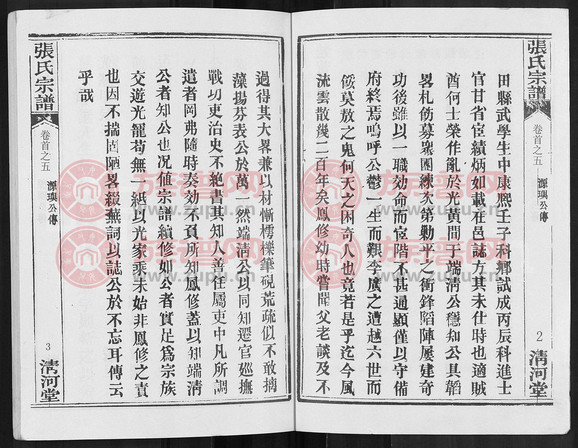 張氏宗譜
卷首之五
源璵公傳
2
清河堂
田縣武學生中康熙壬子科鄉試成丙辰科進士
官甘省宦績炳如載在邑誌方其未仕時也適賊
酋何士榮作亂於光黃間于端清公穩知公具韜
畧札飭募衆團練次第勦平之衝鋒陷陣屢建奇
功後雖以一職効命而宦階不甚通顯僅以守備
府終焉嗚呼公鬱一生而艱李廣之遭越六世而
餒莫敖之鬼何天之困奇人也竟若是乎迄今風
流雲散幾二百年矣鳳修幼時嘗聞父老談及不
過得其大畧兼以材慚樗櫟筆硯荒疏似不敢摛
藻揚芬表公於萬一然端清公以同知遷官廵撫
戰功吏治史不絶書其知人善任屬吏中凡所調
遣者岡弗隨時奏効不負所知鳳修蓋以知端清
公者知公也况値宗譜續修如公者實足為宗族
交遊光寵苟無一紙以光家乘未始非鳳修之責
也因不揣固陋畧綴蕪詞以誌公於不忘耳傳云
乎哉
張氏宗譜
卷首之五
源璵公傳
3
清河堂
族譜网
www.zupu.cn